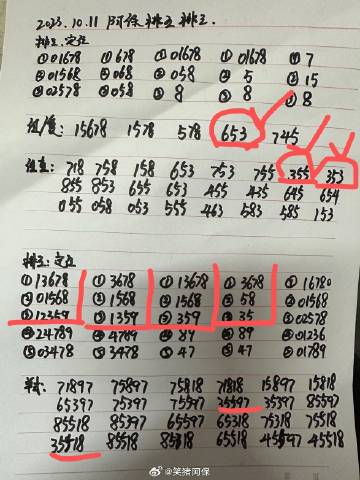 2023.10.11 阿保排三排五
排三:定位
①01678 ①678 ①01678 ①01678 ①7
②01568 ②068 ②058 ②5 ②15
③02578 ③058 ③8 ③8 ③8
组/直: 15678 1578 578 653 745
组直: 718 758 158 653 753 755 355 353
855 853 655 653 455 435 645 654
055 058 053 555 463 583 585 153
排五:定位
①13678 ①3678 ①13678 ①3678 ①16780
②01568 ②1568 ②1568 ②58 ②01568
③12359 ③1359 ③359 ③35 ③02578
④24789 ④4789 ④89 ④89 ④01236
⑤03478 ⑤3478 ⑤47 ⑤47 ⑤01789
71897 75897 75818 71818 15897 15818
65397 75397 75597 35597 35397 85597
85518 85397 65597 65318 75318 75518
35518 85518 85318 65518 45597 45518
@笑猪阿保